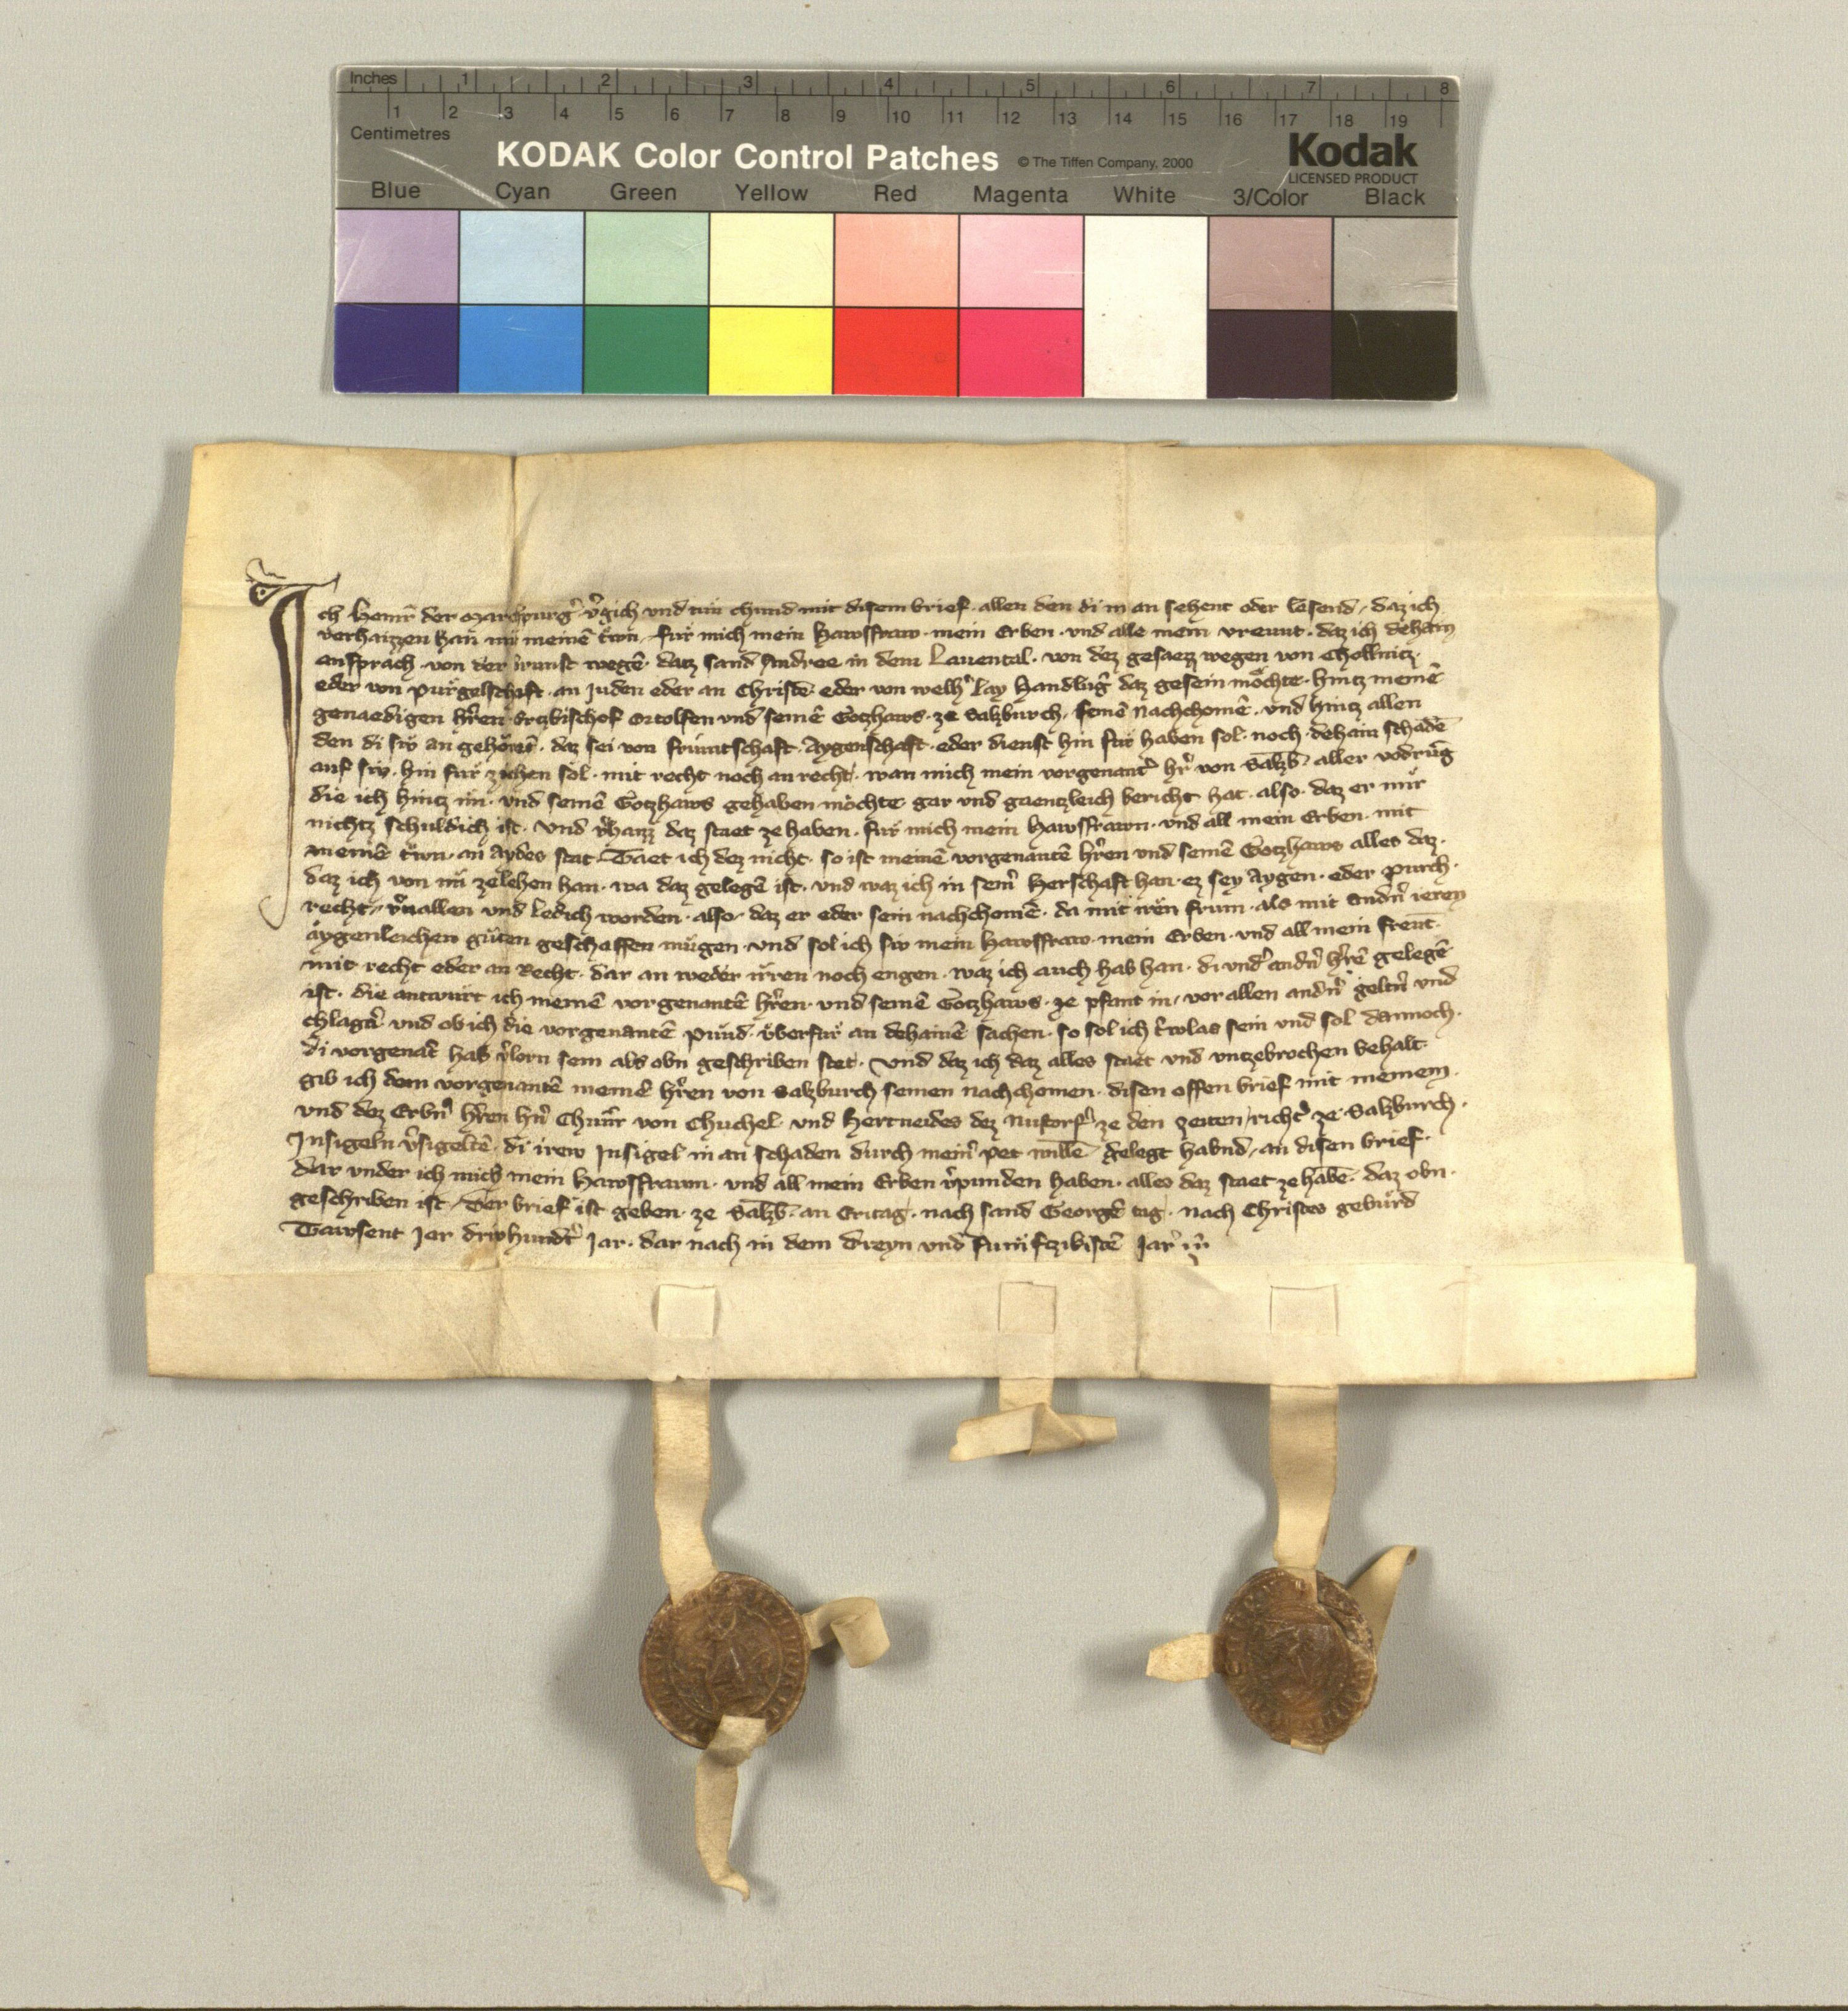 Inches 1 2 3 4 5 6 7 8
1 2 3 4 5 6 7 8 9 10 11 12 13 14 15 16 17 18 19
Centimetres
KODAK Color Control Patches © The Tiffen Company, 2000 Kodak
LICENSED PRODUCT
Blue Cyan Green Yellow Red Magenta White 3/Color Black
Ich Heinr̄ der Marchpurg̓ v̓gich und tůn chund mit disem brief. allen den di in an sehent oder lesend, daz ich
verhaizzen han mit meinē trͤwn, fuͤr mich mein Hawsfraw. mein Erben. und alle mein vreunt. daz ich dehain
ansprach. von der prunst wegē. datz sand Andree in dem Lauental. von dez gesaezz wegen von Chollnitz.
eder von Puͤrgelschaft. an Juden eder an Christē. eder von welh̓lay Handlūg daz gesein moͤchte. hintz meinē
genaedigen hr̄en Ertzbischof Ortolfen und seinē Gotzhaws. ze Salzburch, seinē Nachchomē. und hintz allen
den di siv an gehoͤrēt. daz sei von fruntschaft. Aygenschaft. eder dienst hin fuͤr haben sol. noch dehain schadē
auf siv. hin fuͤr ziehen sol. mit recht noch an recht. wan mich mein vorgenant̓ hr̄ von Salzb̄ aller vodrūg
die ich hintz im. und seinē Gotzhaws gehaben moͤchte gar und gaentzleich bericht hat. also. daz er mir
nichtz schuldich ist. Und v̓haizz daz staet ze haben. fuͤr mich mein Hawsfrawn. und all mein Erben. mit
meinē trͤwn. an Aydes stat. Taet ich dez nicht. so ist meinē vorgenantē hr̄en und seinē Gotzhaws alles daz.
daz ich von im ze lehen han. wa daz gelegē ist. und waz ich in sein̓ Herschaft han. ez sey Aygen. eder Purch.
recht, v̓vallen und ledich worden. also, daz er eder sein nachchomē. da mit irͤn frum. als mit andn̓ ieren
aygenleichen guͤten geschaffen muͤgen. und sol ich siv mein Hawsfraw. mein Erben. und all mein freūt.
mit recht eder an Recht. dar an weder irren noch engen. waz ich auch hab han. di und̓ andn̓ hr̄ē gelegē
ist. die antwurt ich meinē vorgenantē hr̄en. und seinē Gotzhaws. ze pfant in, vor allen andn̓ geltn̓ und
chlagn̓ und ob ich die vorgenantē puͤnd. uͤberfuͤr an dehainē sachen. so sol ich tr̓wlas sein und sol dannoch.
di vorgenāt hab v̓lorn sein als obn geschriben stet. Und daz ich daz alles staet und untzebrochen behalt.
gib ich dem vorgenantē meinē hr̄en von Salzburch seinen nachchomen. disen offen brief mit meinem.
und dez Erbn̓ hr̄en hn̓ Chunr̄ von Chuchel. und Hertneides dez Nustorf̓ ze den zeiten richt̓ ze Salzburch.
Insigeln v̓sigeltē. di irew Insigel in an schaden durch mein̓ pet willē gelegt habnd, an disen brief.
dar under ich mich mein Hawsfrawn. und all mein Erben v̓punden haben. alles daz staet ze habē. daz obn.
geschriben ist, Der brief ist geben. ze Salzb̄. an Eritag. nach sand Georgē tag. nach Christes geburd
Tawsent Jar drivhundt̓ Jar. dar nach in dem dreyn und fumfczikistē Jar